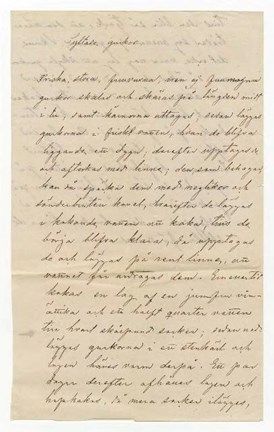 Syltade gurkor.
Friska, stora, finvuxna, men ej gulmogna
gurkor skalas och skäras på längden midt
i tu, samt kärnorna uttagas; sedan läggas
gurkorna i friskt vatten, hvari de blifva
liggande ett dygn, derefter upptagas de
och aftorkas med linne; den, som behagar,
kan då späcka dem med neglikor och
sönderbruten kanel, hvarefter de läggas
i kokande vatten att koka, tills de
börja blifva klara; då upptagas
de och läggas på rent linne, att
vattnet får afdragas dem. Emellertid
kokas en lag af en jumfru vin-
ättika och ett halft quarter vatten
till hvart skålpund socker; sedan ned-
läggas gurkorna i en stenkruka och
lagen slås varm derpå. Ett par
dagar derefter afhälles lagen och
uppkokas, då mera socker ilägges,